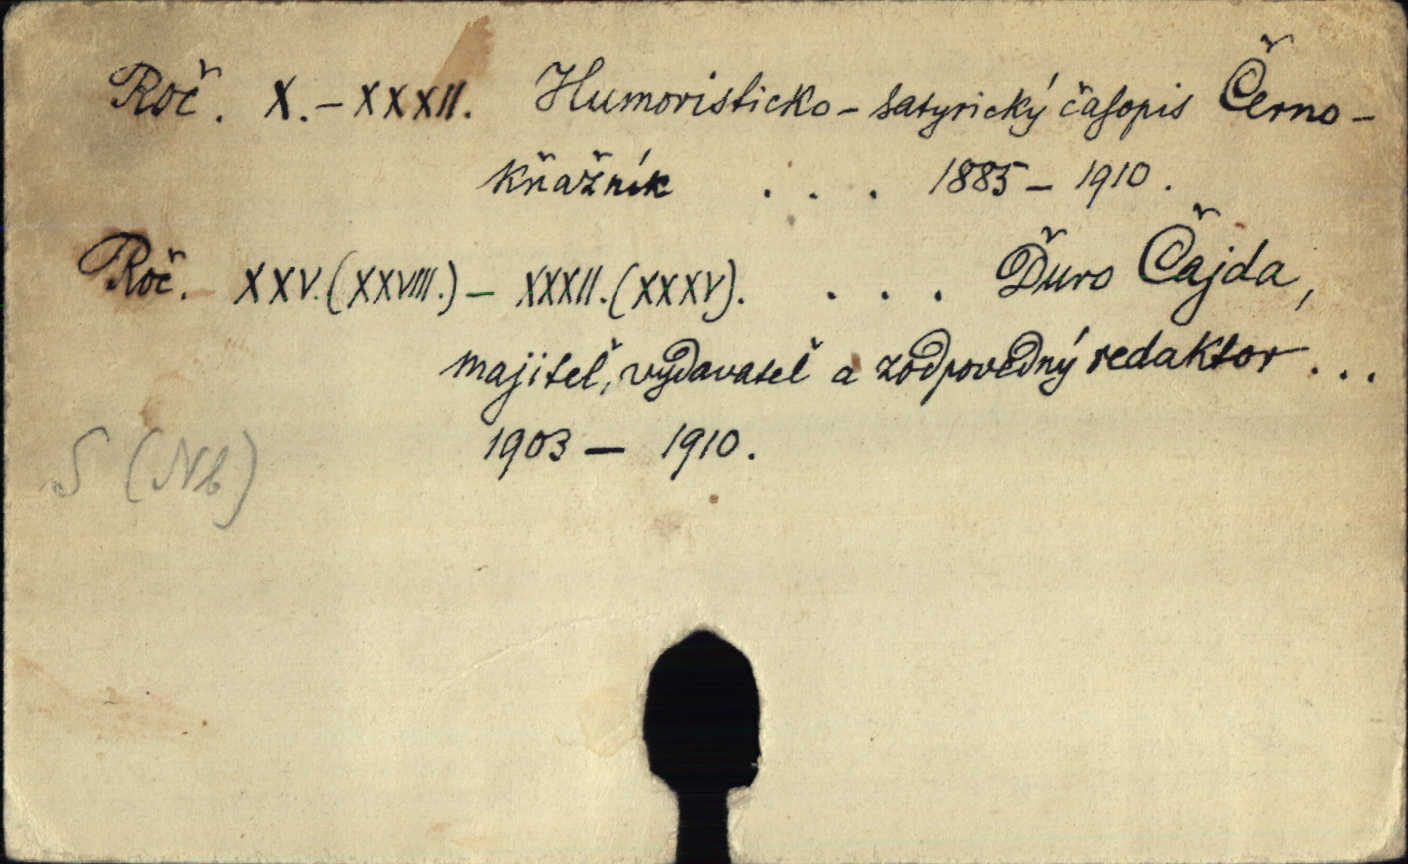 Roč. X.-XXXII. Humoristicko-satyrický časopis Černo-
kňažník . . . 1885-1910.
Roč. XXV.(XXVIII.)- XXXII.(XXXV). . . . Ďuro Čajda,
majiteľ, vydavateľ a zodpovedný redaktor ...
1903 - 1910.
S (Nb)